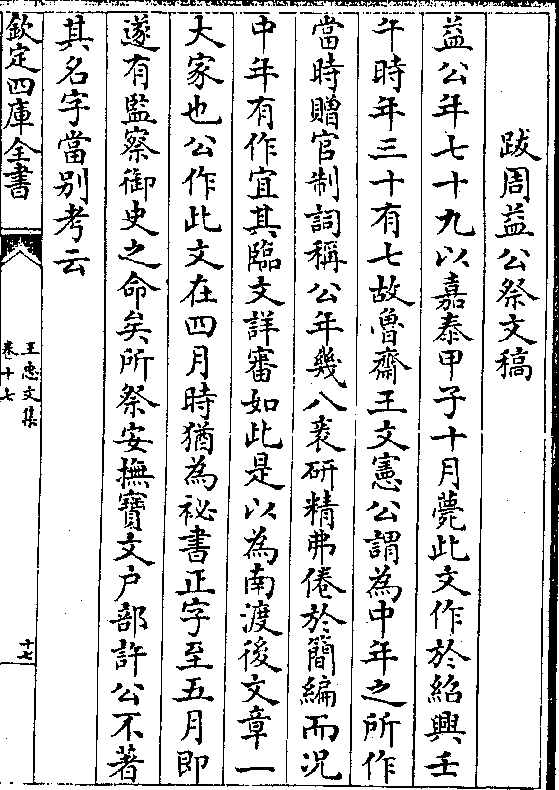 跋周益公祭文稿
益公年七十九以嘉泰甲子十月薨此文作於紹興壬
午時年三十有七故魯齋王文憲公謂為中年之所作
當時贈官制詞稱公年幾八袠研精弗倦於簡編而况
中年有作宜其臨文詳審如此是以為南渡後文章一
大家也公作此文在四月時猶為祕書正字至五月即
遂有監察御史之命矣所祭安撫寶文户部許公不著
其名字當别考云
欽定四庫全書
王忠文集
卷十七
十七